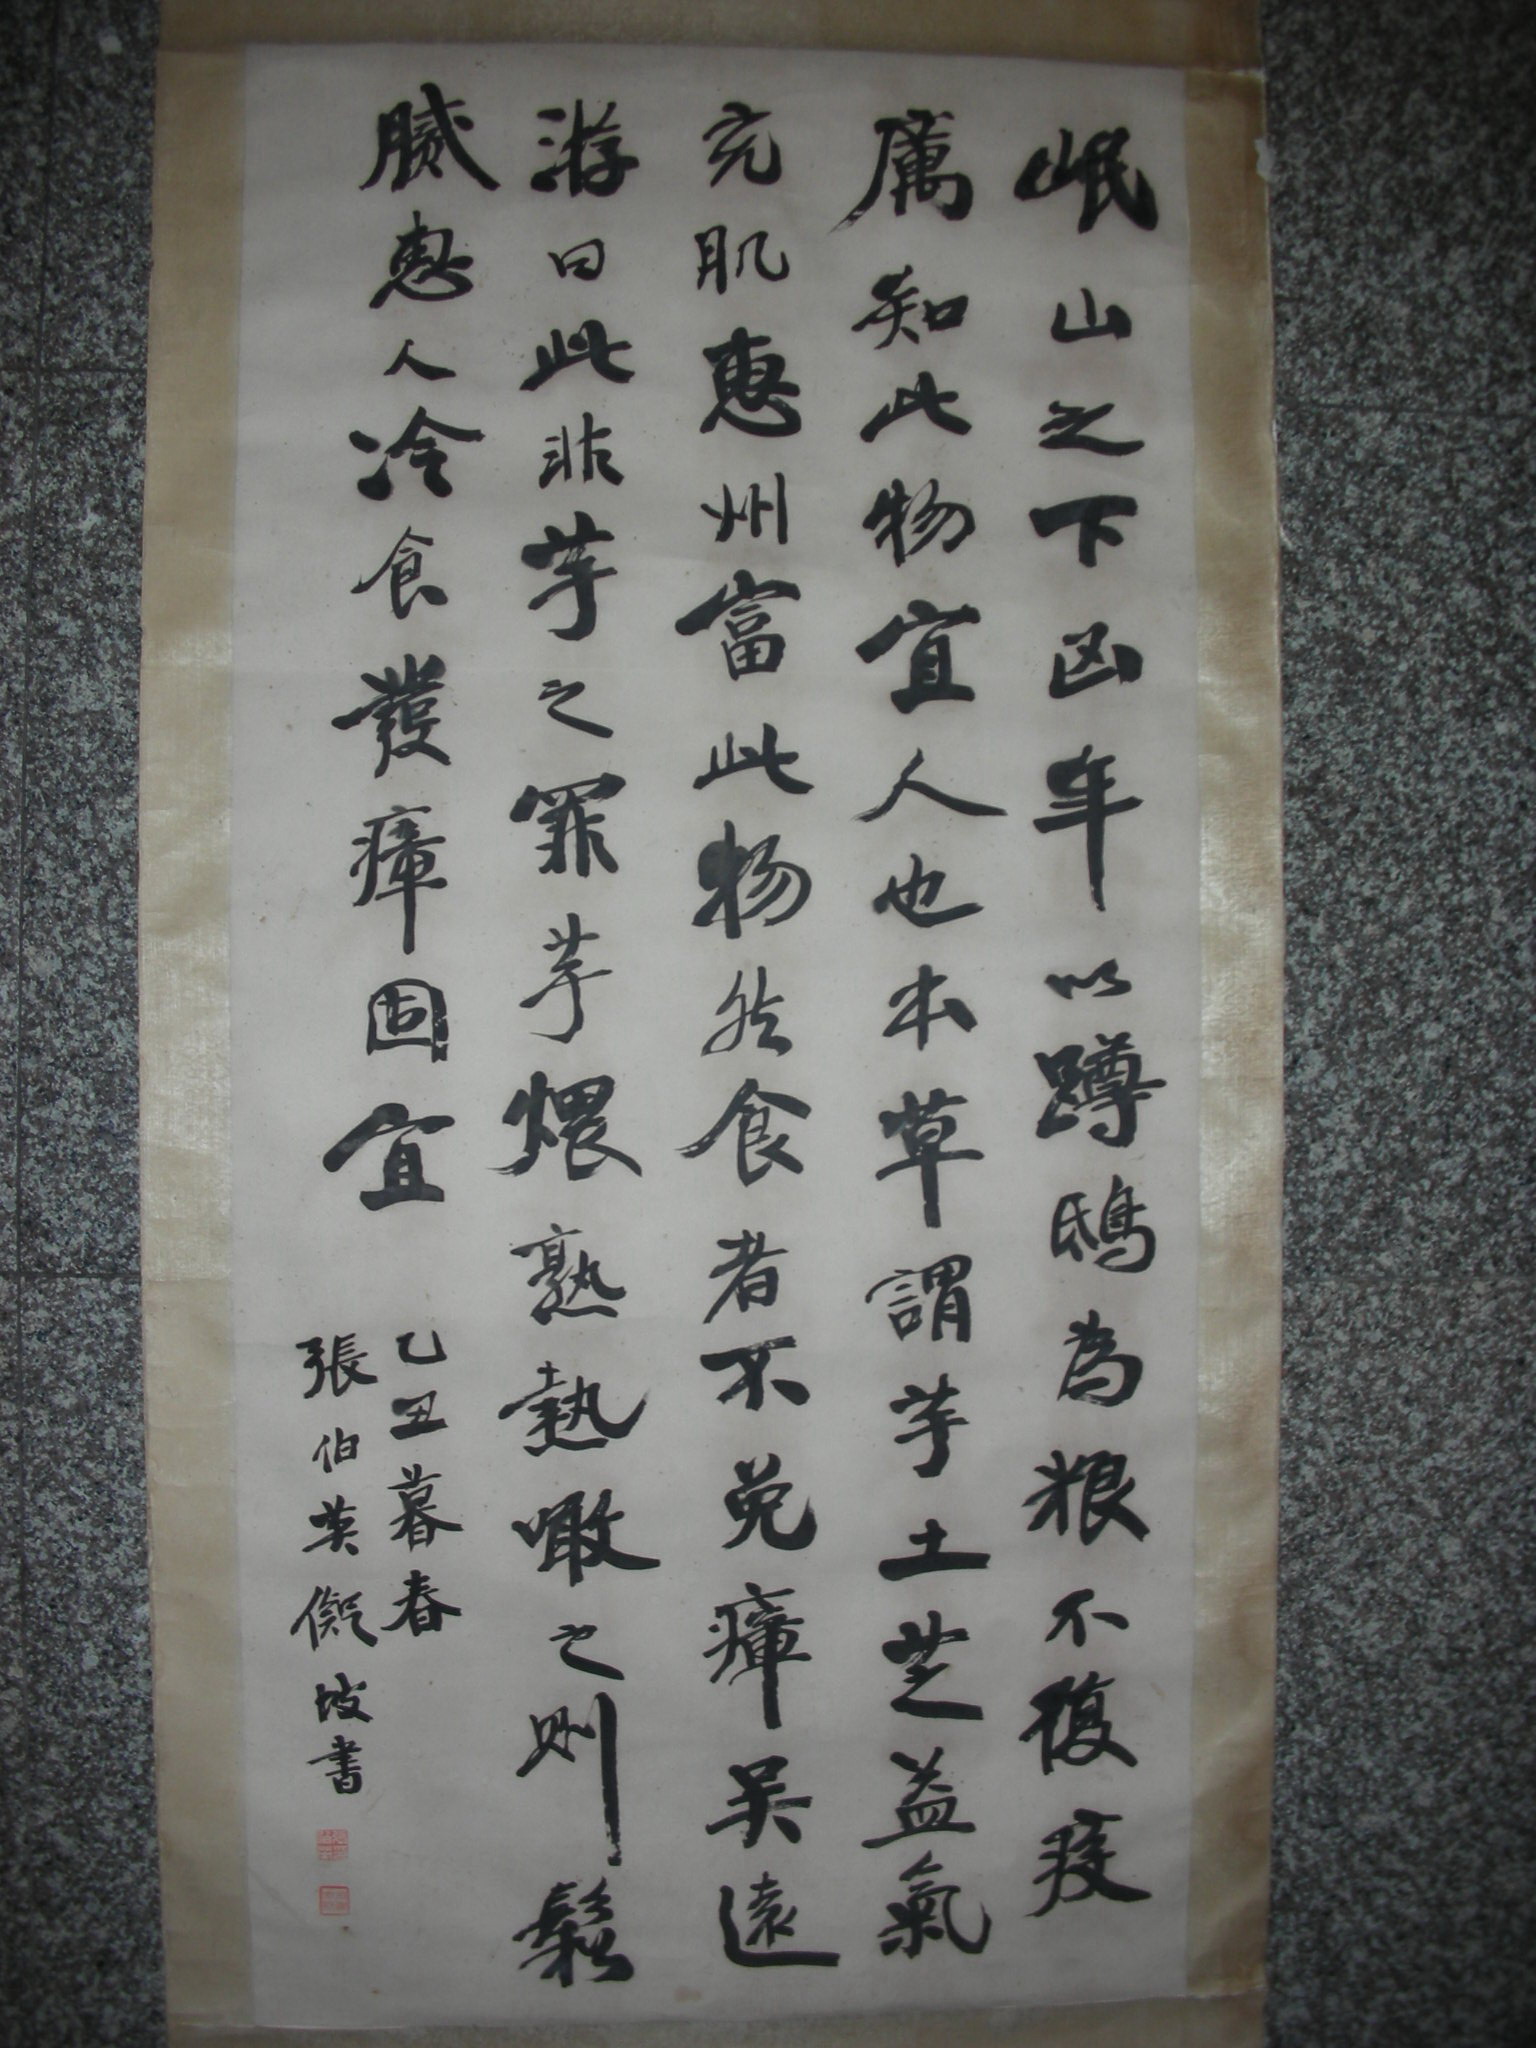 岷山之下凶年以蹲鴟為粮不復疫
厲知此物宜人也本草謂芋土芝益氣
充肌惠州富此物然食者不免瘴吳遠
游曰此非芋之罪芋煨熟熱噉之則鬆
膩惠人冷食發瘴固宜
乙丑暮春
張伯英儗坡書